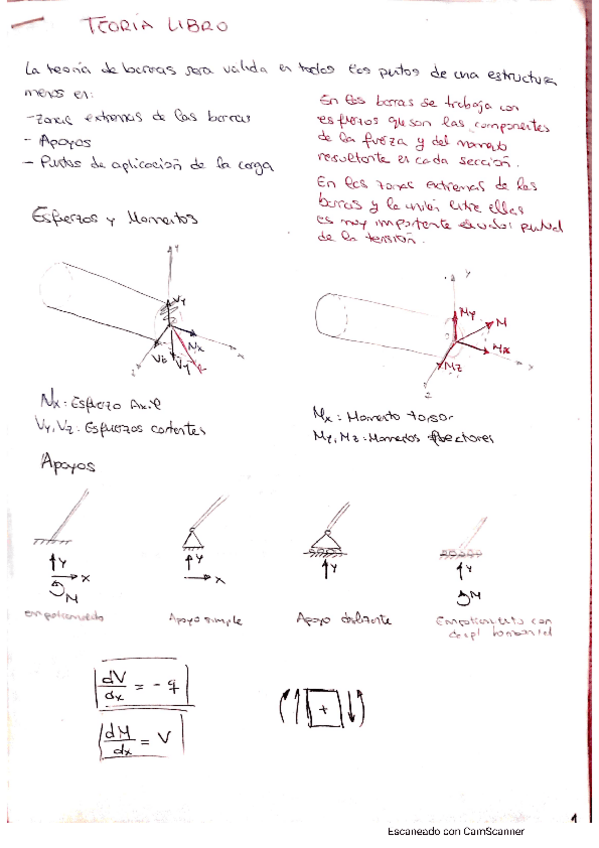 TEORIA LIBRO
La teoría de barras sera válida en todos los puntos de una estructura
menos en:
- Zonas extremas de las barras
- Apoyos
- Puntos de aplicación de la carga
En las barras se trabaja con
esfuerzos que son las componentes
de la fuerza y del momento
resultante en cada sección.
En las zonas extremas de las
barras y la unión entre ellas
es muy importante
de la tensión.
Esfuerzos y Momentos
Y
Vy
Nx
Vz
Vy
x
z
Y
My
M
Mx
Mz
x
z
Nx: Esfuerzo Axil
Vy, Vz: Esfuerzos cortantes
Mx: Momento torsor
My, Mz: Momentos flectores
Apoyos
Y
x
M
Y
x
Y
Y
M
Empotramiento
Apoyo simple
Apoyo deslizante
Empotramiento con
despl horizontal
dV/dx = - q
dM/dx = V
+
1
Escaneado con CamScanner